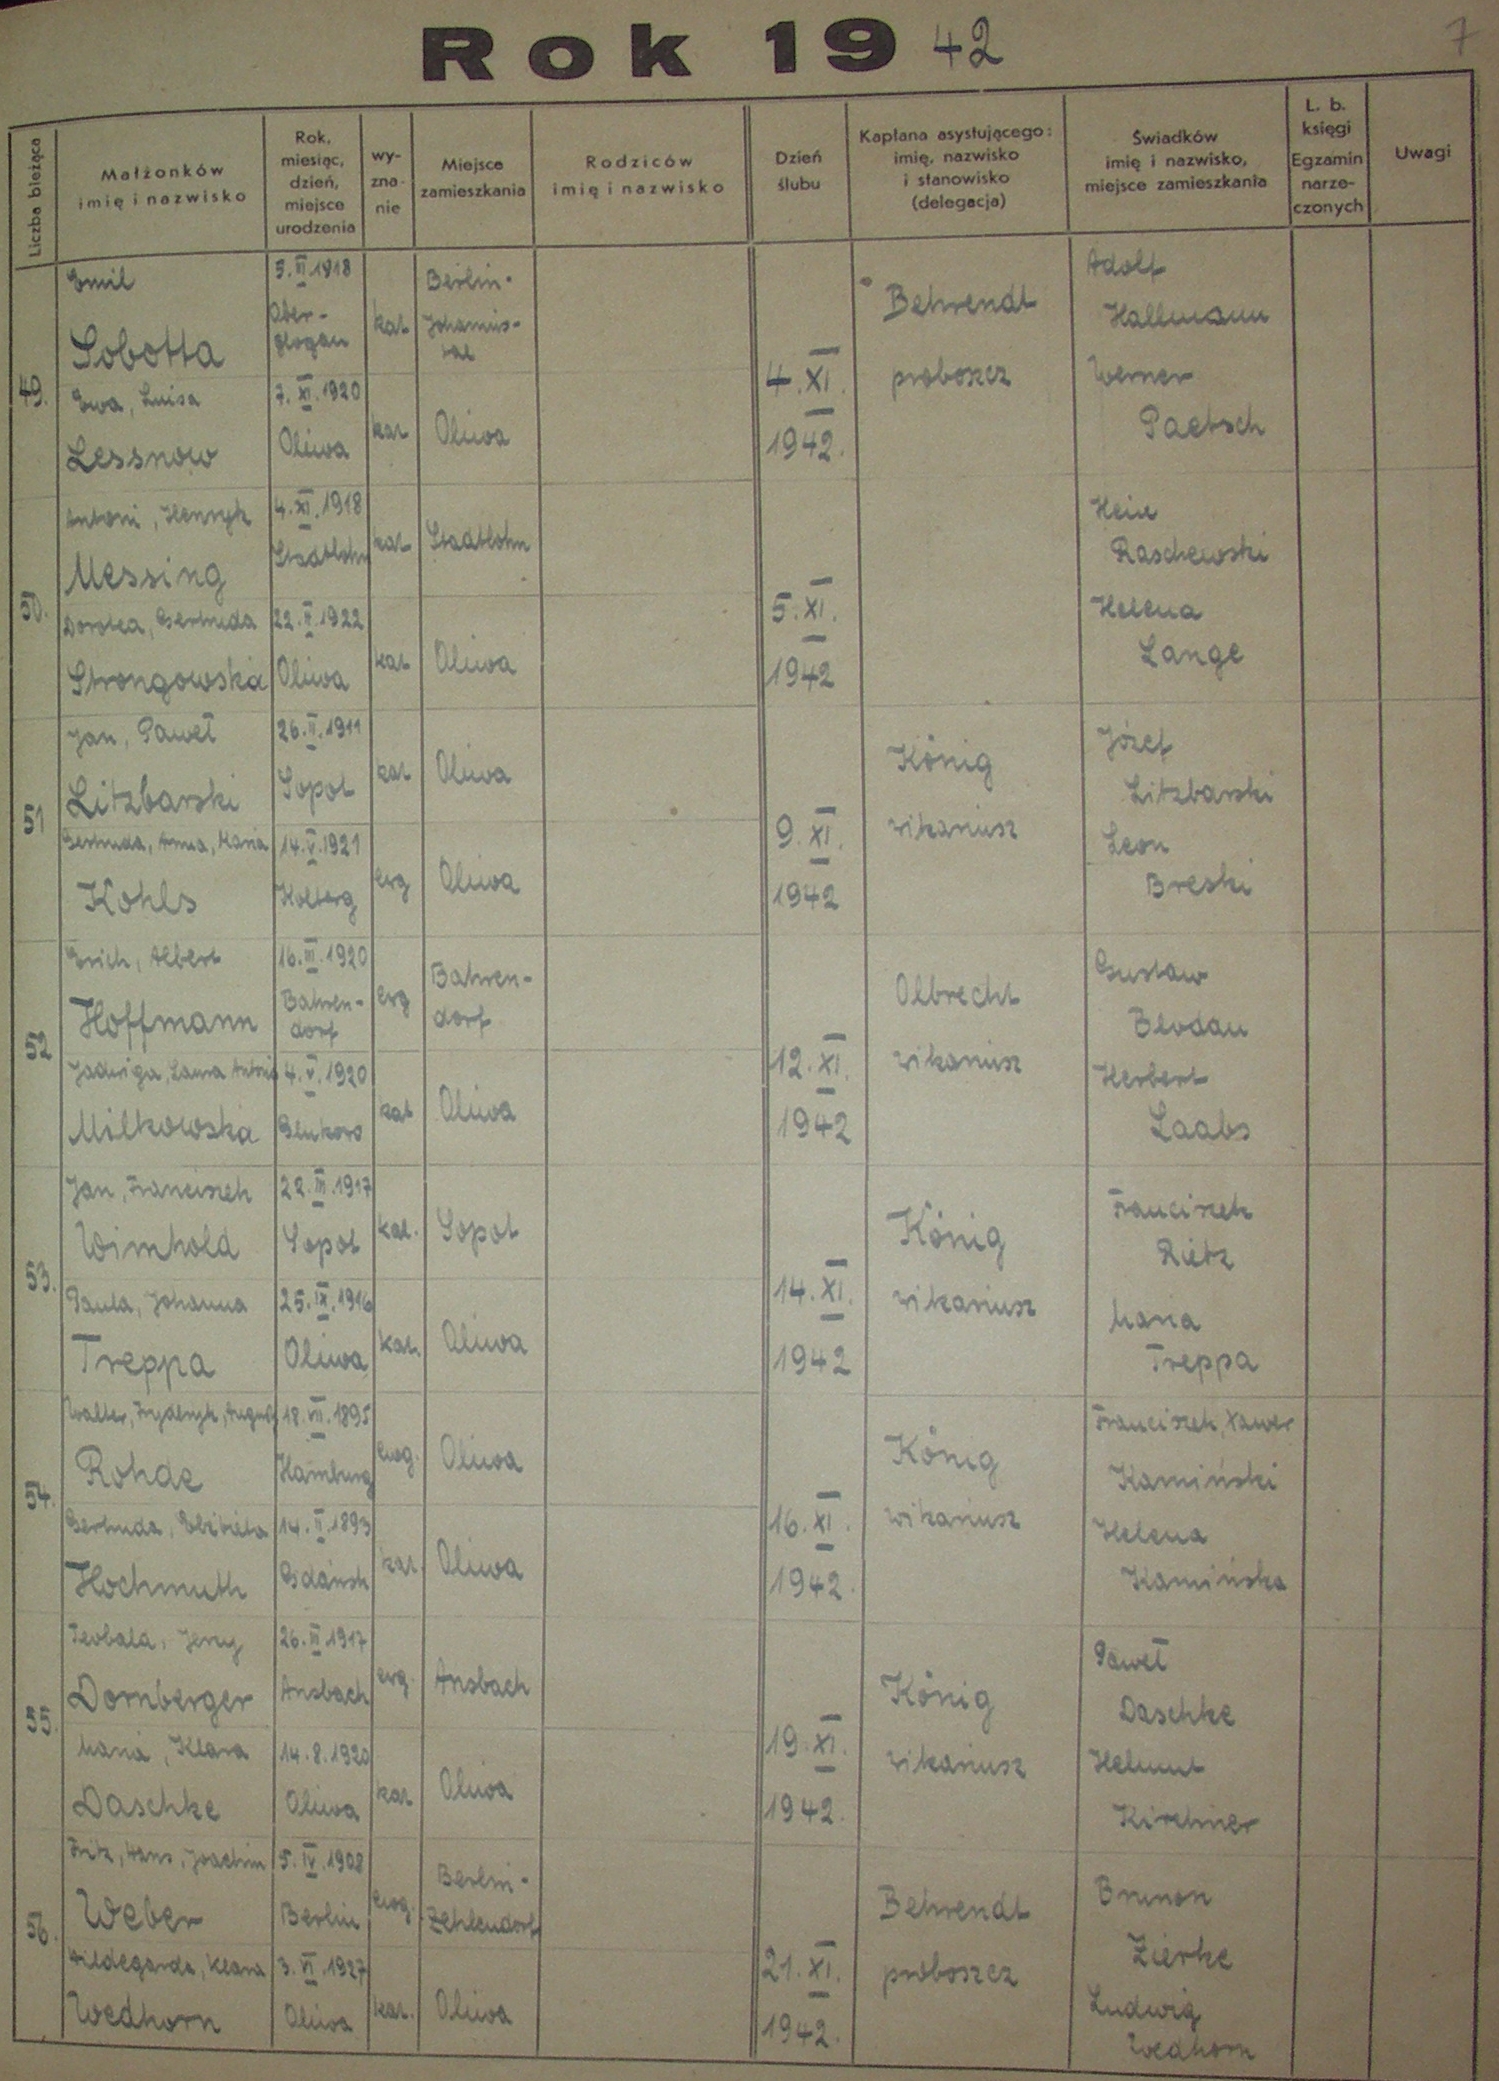 Rok 1942
7
Liczba bieżąca
Małżonków
imię i nazwisko
Rok,
miesiąc,
dzień,
miejsce
urodzenia
wy-
zna-
nie
Miejsce
zamieszkania
Rodziców
imię i nazwisko
Dzień
ślubu
Kapłana asystującego:
imię, nazwisko
i stanowisko
(delegacja)
Świadków
imię i nazwisko,
miejsce zamieszkania
L. b.
księgi
Egzamin
narze-
czonych
Uwagi
49.
Emil
Sobotta
5.II.1918
Ober-
glogau
kat
Berlin-
Johannis-
tal
Ewa, Luisa
Lessnow
7.XI.1920
Oliwa
kat
Oliwa
4.XI.
1942.
Behrendt
proboszcz
Adolf
Hallmann
Werner
Paetsch
50.
Antoni, Henryk
Messing
4.XI.1918
Stadtlohn
kat
Stadtlohn
Dorotea, Gertruda
Strongowska
22.II.1922
Oliwa
kat
Oliwa
5.XI.
1942
Raschewski
Helena
Lange
51
Jan, Paweł
Litzbarski
26.II.1911
Sopot
kat
Oliwa
Gertruda, Anna, Maria
Kohls
14.V.1921
Kolberg
ewg
Oliwa
9.XI.
1942
König
wikariusz
Józef
Litzbarski
Leon
Breski
52
Erich, Albert
Hoffmann
16.III.1920
Bahren-
dorf
ewg
Bahren-
dorf
Jadwiga, Laura
Milkowska
4.V.1920
kat
Oliwa
12.XI.
1942
Olbrecht
wikariusz
Gustaw
Blodau
Herbert
Laabs
53.
Jan, Franciszek
Wimhold
22.III.1917
Sopot
kat.
Sopot
Paula, Johanna
Treppa
25.IX.1916
Oliwa
kat.
Oliwa
14.XI.
1942
König
wikariusz
Franciszek
Rietz
Maria
Treppa
54.
Walter, Fryderyk, August
Rohde
18.VII.1895
Hamburg
ewg.
Oliwa
Gertruda, Elżbieta
Hochmuth
14.II.1893
Gdańsk
kat.
Oliwa
16.XI.
1942.
König
wikariusz
Franciszek, Xawer
Kamiński
Helena
Kamińska
55.
Teobald, Jerzy
Dornberger
26.III.1917
Ansbach
ewg.
Ansbach
Maria, Klara
Daschke
14.8.1920
Oliwa
kat
Oliwa
19.XI.
1942.
König
wikariusz
Paweł
Daschke
Helmut
Kirchner
56.
Fritz, Hans, Joachim
Weber
5.IV.1908
Berlin
ewg.
Berlin-
Zehlendorf
Hildegarda, Klara
Wedhorn
3.VI.1927
Oliwa
kat.
Oliwa
21.XI.
1942.
Behrendt
proboszcz
Brunon
Zierke
Ludwig
Wedhorn